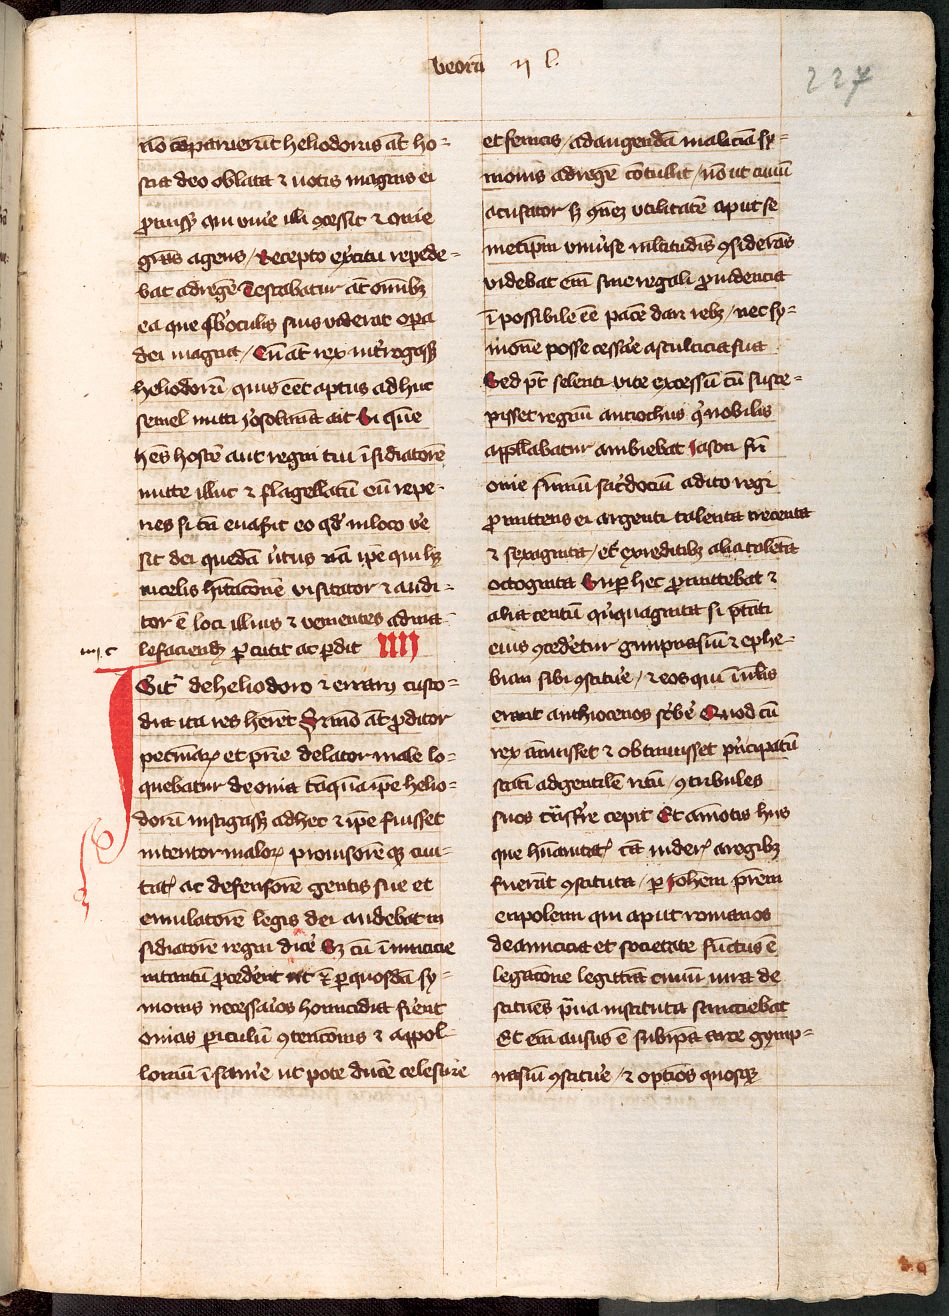 beorū ij l.
227
nō cōparuerūt heliodorus āt ho-
stia deo oblata ⁊ votis magnis ei
ꝓmissꝭ qui viue illi ꝯcessit ⁊ onie
grās agens / Recepto exʼcitu repede-
bat ad regē Testabatur āt omībꝫ
ea que sb oculis suis viderat opa
dei magna / Cū āt rex introgassꝫ
heliodorū quis eēt aptus adhuc
semel mitti yherosolimā ait Si quē
hēs hostē aut regni tui īsidiatorē
mitte illuc ⁊ flagellatū eū repe-
ries si tn̄ euaserit eo qd̓ in loco ve
sit dei quedā v̓tus nā ip̄e qui hꝫ
in celis hītacōnē visitator ⁊ adiu-
tor ē loci illius ⁊ venientes ad ma-
lefaciendū ꝑcutit ac ꝑdit IIII
iiij c
Igit̄ de heliodoro ⁊ erarij custo-
dia ita res heret Symō āt ꝓditor
pecuniaꝝ et prīe delator male lo-
quebatur de onia tāquā ip̄e helio-
dorū instigassꝫ ad hec ⁊ ip̄e fuisset
intentor maloꝝ prouisorē qꝫ ciui-
tatꝭ ac defensorē gentis sue et
emulatorē legis dei audebat in
sidiatorē regni dicē Sꝫ cū īimicicie
in tantū ꝓcederēt ut ꝑ quosdā sy-
monis necessarios homicidia fierent
onias piculū ꝯtencōnis ⁊ appol-
loniū īsanire ut pote ducē celesirie
et fenicis / ad augendā maliciā sy-
monis ad regē cōtulit / nō ut ciuiū
acusator sꝫ ꝯmūē vtilitatē aput se
metip̄m vniūse mltitudīs ꝯsiderās
videbat em̄ sine regali ꝓuidencia
īpossibile eē pacē dari rebꝫ / nec sy-
monē posse cessare a stulticia sua
Sed pt̄ seleuci vite excessū cū susce-
pisset regnū antiochus q̇ nobilis
appllabatur ambiebat Jason fr̄
onie sūmū sacerdociū adito rege
ꝓmittens ei argenti talenta trecenta
⁊ sexaginta / et ex redditibꝫ alia talēta
octoginta Suꝑ hec ꝓmittebat ⁊
alia centū qͥnquaginta si ptāti
eius ꝯcederetur gimpnasiū ⁊ ephe-
biam sibi ꝯstituere / ⁊ eos qui ī ihrlis
erant anthiocenos scribere Quod cū
rex annuisset ⁊ obtinuisset principatū
statī ad gentilē ritū ꝯtribules
suos trāsferre cepit Et amotis hijs
que humanitatꝭ cā iudeis a regibꝫ
fuerāt ꝯstituta / ꝑ Johem prēm
eupolemi qui aput romanos
de amicicia et societate fūctus ē
legacōne legittīa ciuiū iura de
stituēs praua instituta sanciebat
Et em̄ ausus ē sub ip̄a arce gymp-
nasiū ꝯstituere / ⁊ optīos quosqꝫ